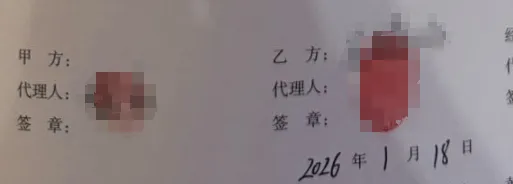 甲 方： 乙 方：
代理人： 代理人：
签 章： 签 章：
2026 年 1 月 18 日